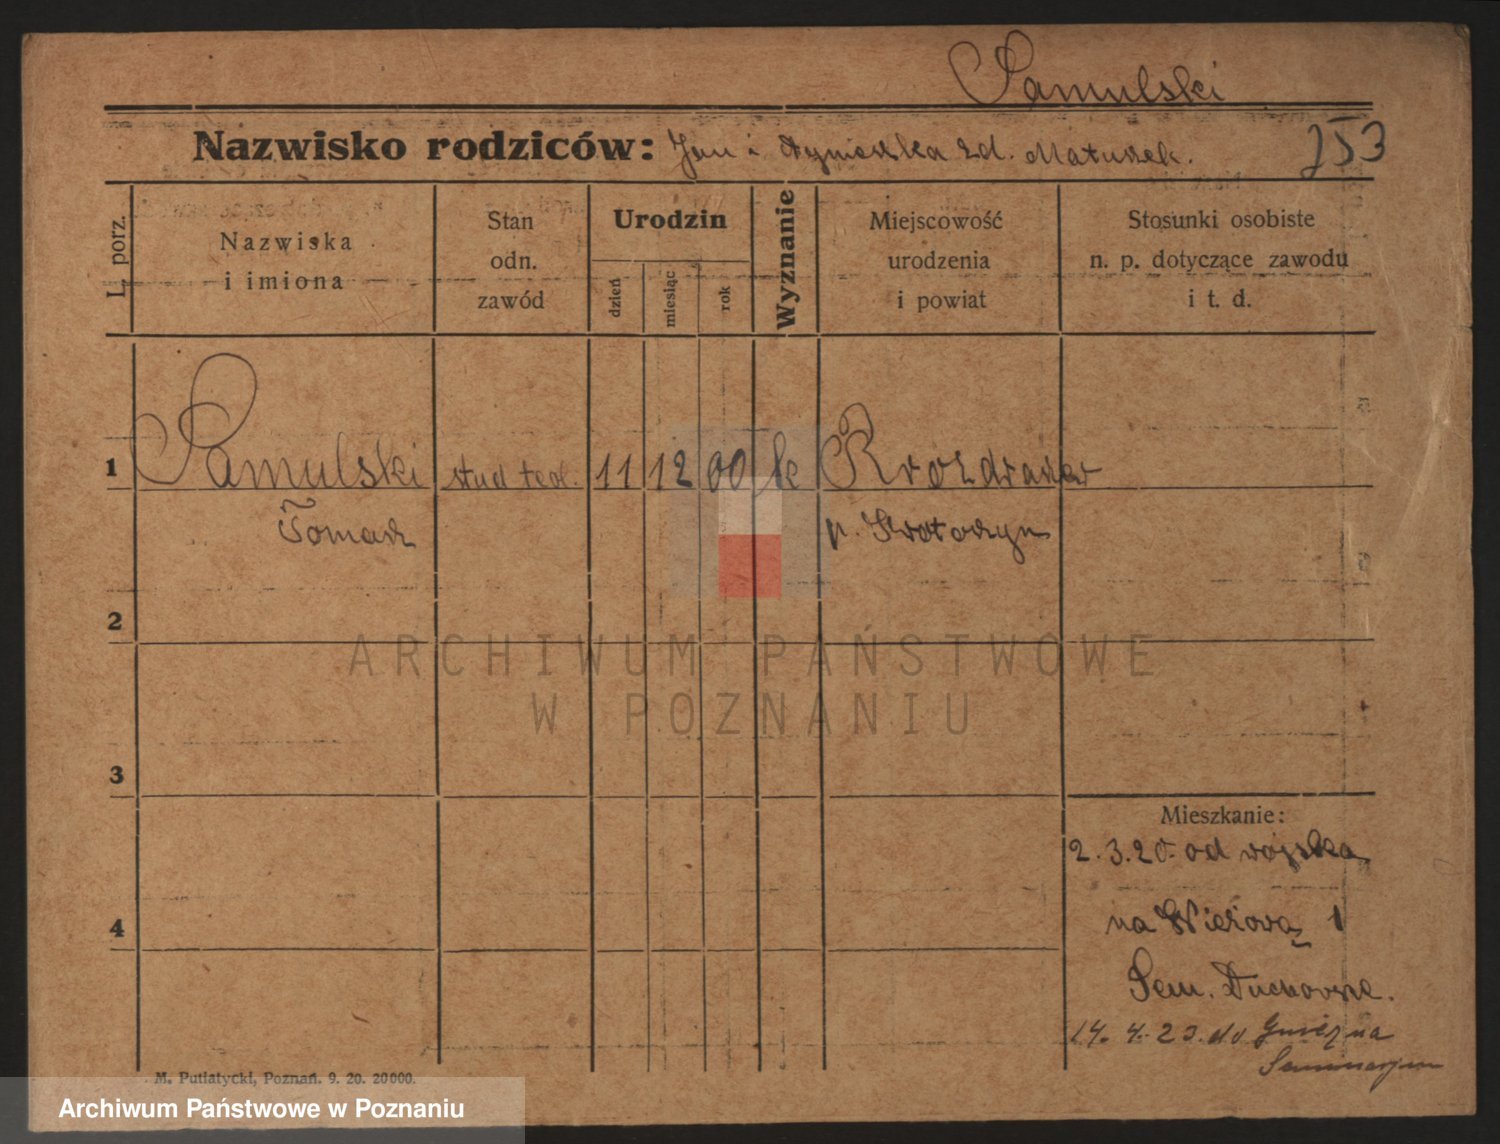 Samulski
Nazwisko rodziców: Jan i Agnieszka zd. Matuszek.
753
L. porz.
Nazwiska
i imiona
Stan
odn.
zawód
Urodzin
dzień
miesiąc
rok
Wyznanie
Miejscowość
urodzenia
i powiat
Stosunki osobiste
n. p. dotyczące zawodu
i t. d.
1 Samulski stud teol. 11 12 00 k Rozdrażew
Tomasz p. Krotoszyn
2
ARCHIWUM PAŃSTWOWE
W POZNANIU
3
Mieszkanie:
2.3.20. od wojska
na Wieżową 1
4
Sem. Duchowne.
14. 4. 23. do Gniezna
Seminarjum
M. Putiatycki, Poznań. 9. 20. 20000.
Archiwum Państwowe w Poznaniu